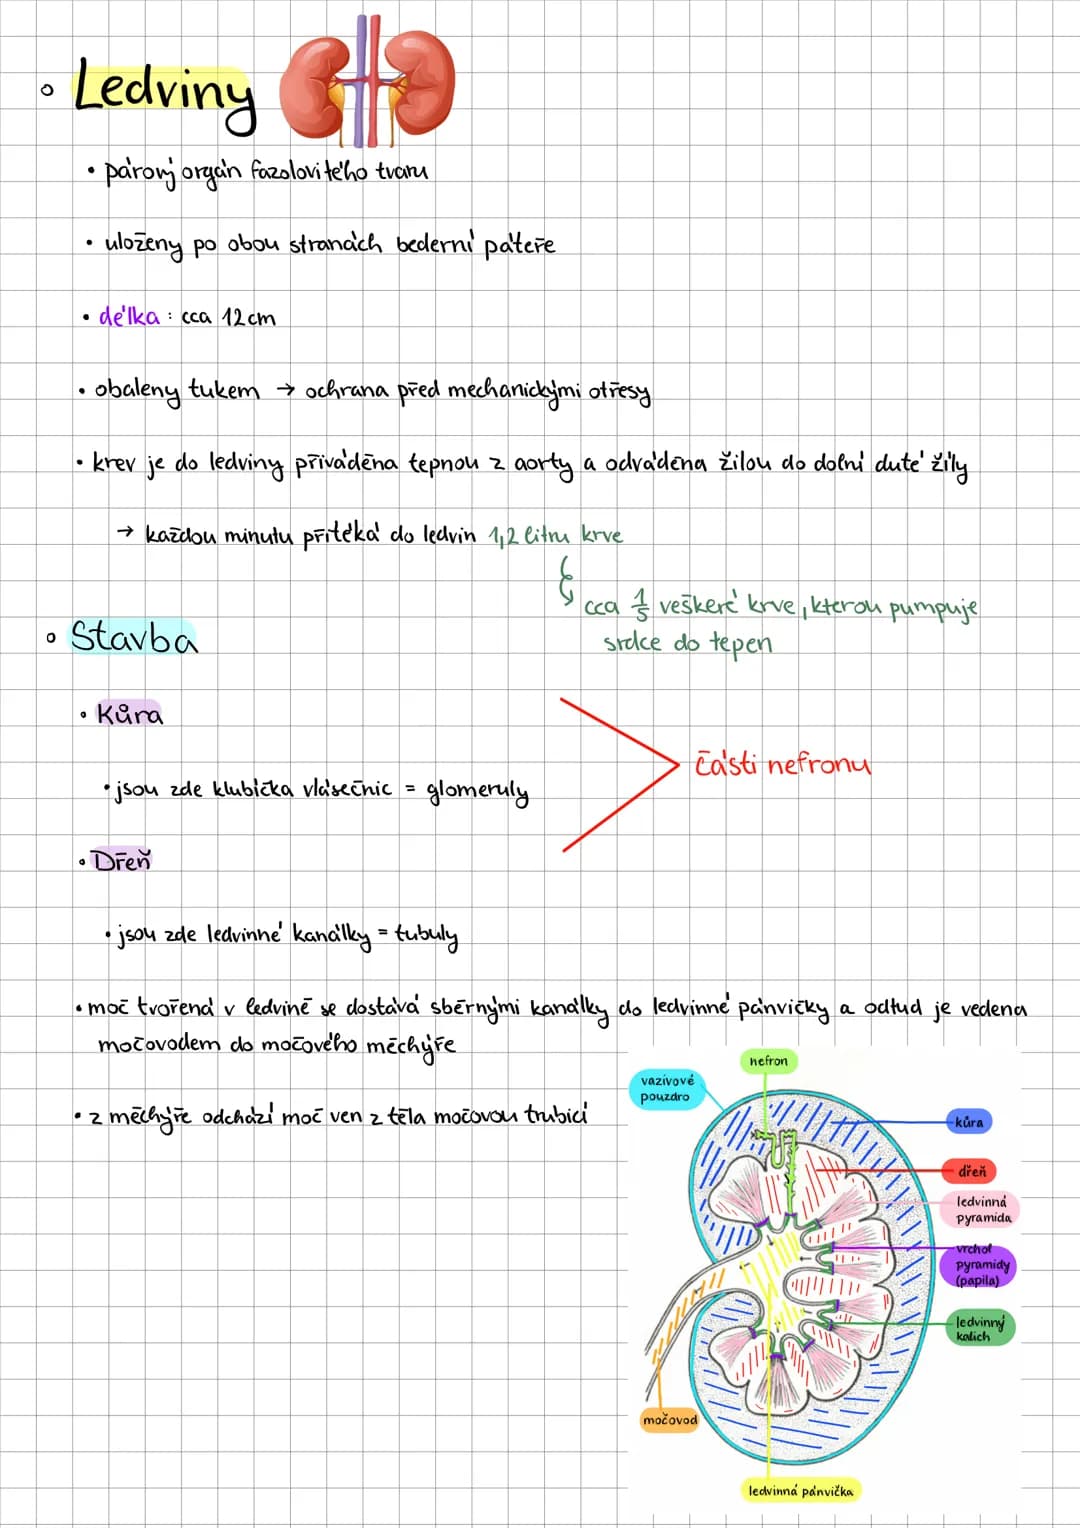 Ledviny
párový orgán fazolovitého tvaru
uloženy po obou stranách bederní páteře
délka : cca 12 cm
obaleny tukem → ochrana před mechanickými otřesy
krev je do ledviny přiváděna tepnou z aorty a odváděna žilou do dolní duté žíly
→ každou minutu přitéká do ledvin 1,2 litru krve
cca 1/5 veškeré krve, kterou pumpuje
srdce do tepen
Stavba
Kůra
části nefronu
jsou zde klubíčka vlásečnic = glomeruly
Dřeň
jsou zde ledvinné kanálky = tubuly
moč tvořená v ledvině se dostává sběrnými kanálky do ledvinné pánvičky a odtud je vedena
močovodem do močového měchýře
z měchýře odchází moč ven z těla močovou trubicí
nefron
vazivové
pouzdro
kůra
dřeň
ledvinná
pyramida
vrchol
pyramidy
(papila)
ledvinný
kalich
močovod
ledvinná pánvička